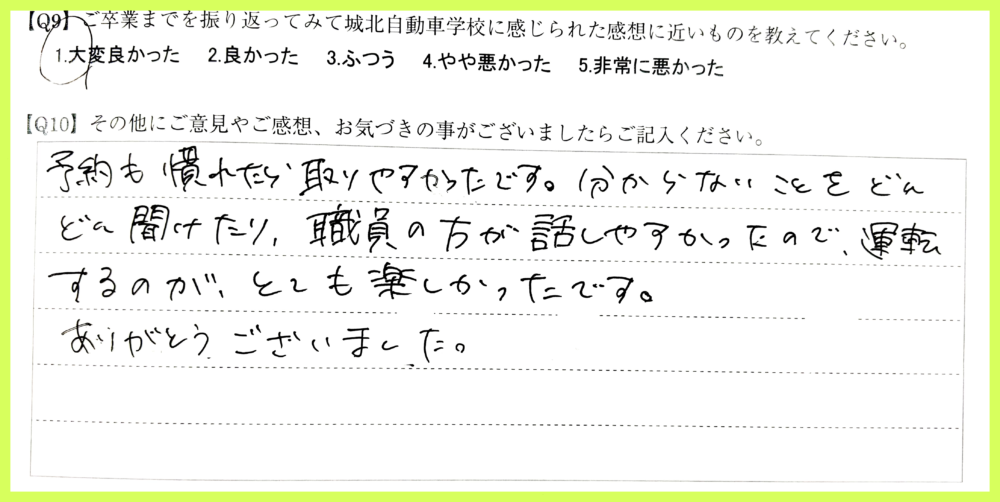 【Q9】ご卒業までを振り返ってみて城北自動車学校に感じられた感想に近いものを教えてください。
1.大変良かった 2.良かった 3.ふつう 4.やや悪かった 5.非常に悪かった
【Q10】その他にご意見やご感想、お気づきの事がございましたらご記入ください。
予約も慣れたら取りやすかったです。分からないことをどん
どん聞けたり、職員の方が話しやすかったので、運転
するのが、とても楽しかったです。
ありがとうございました。